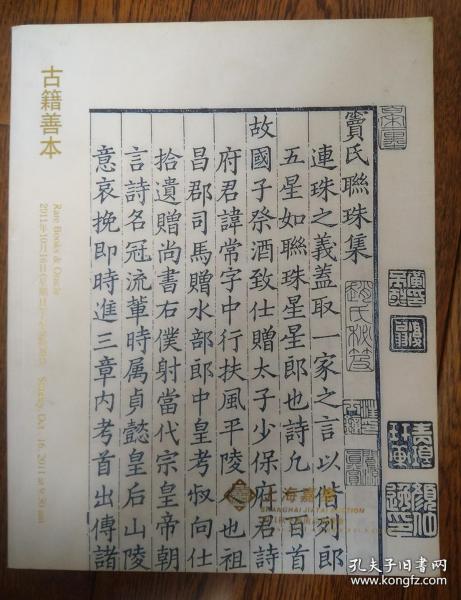 古籍善本
Rare Books & Oracle
2011年10月16日(星期日)上午9:30 Sunday, Oct. 16, 2011 at 9:30 am
竇氏聯珠集
連珠之義蓋取一家之言以偕列郎
五星如聯珠星星郎也詩九 百首
故國子祭酒致仕贈太子少保府君詩
府君諱常字中行扶風平陵人也祖
昌郡司馬贈水部郎中皇考叔向仕
拾遺贈尚書右僕射當代宗皇帝朝
言詩名冠流輩時属貞懿皇后山陵
意哀挽即時進三章内考首出傳諸
上海嘉泰
SHANGHAI JIATAI AUCTION
孔夫子旧书网
www.kongfz.com